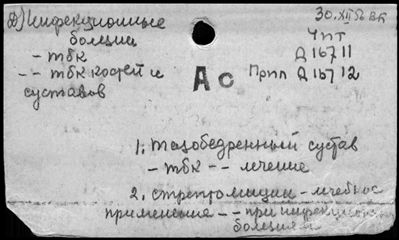 30.XII.56 вк
Д) Инфекционные
болезни
- тбк
- - тбк костей и
суставов
Ас
Чпт
Д 16711
Прип Д 16712
1. Тазобедренный сустав
- тбк - - лечение
2. Стрептомицин - лечебное
применение - - при инфекцион.
болезнях